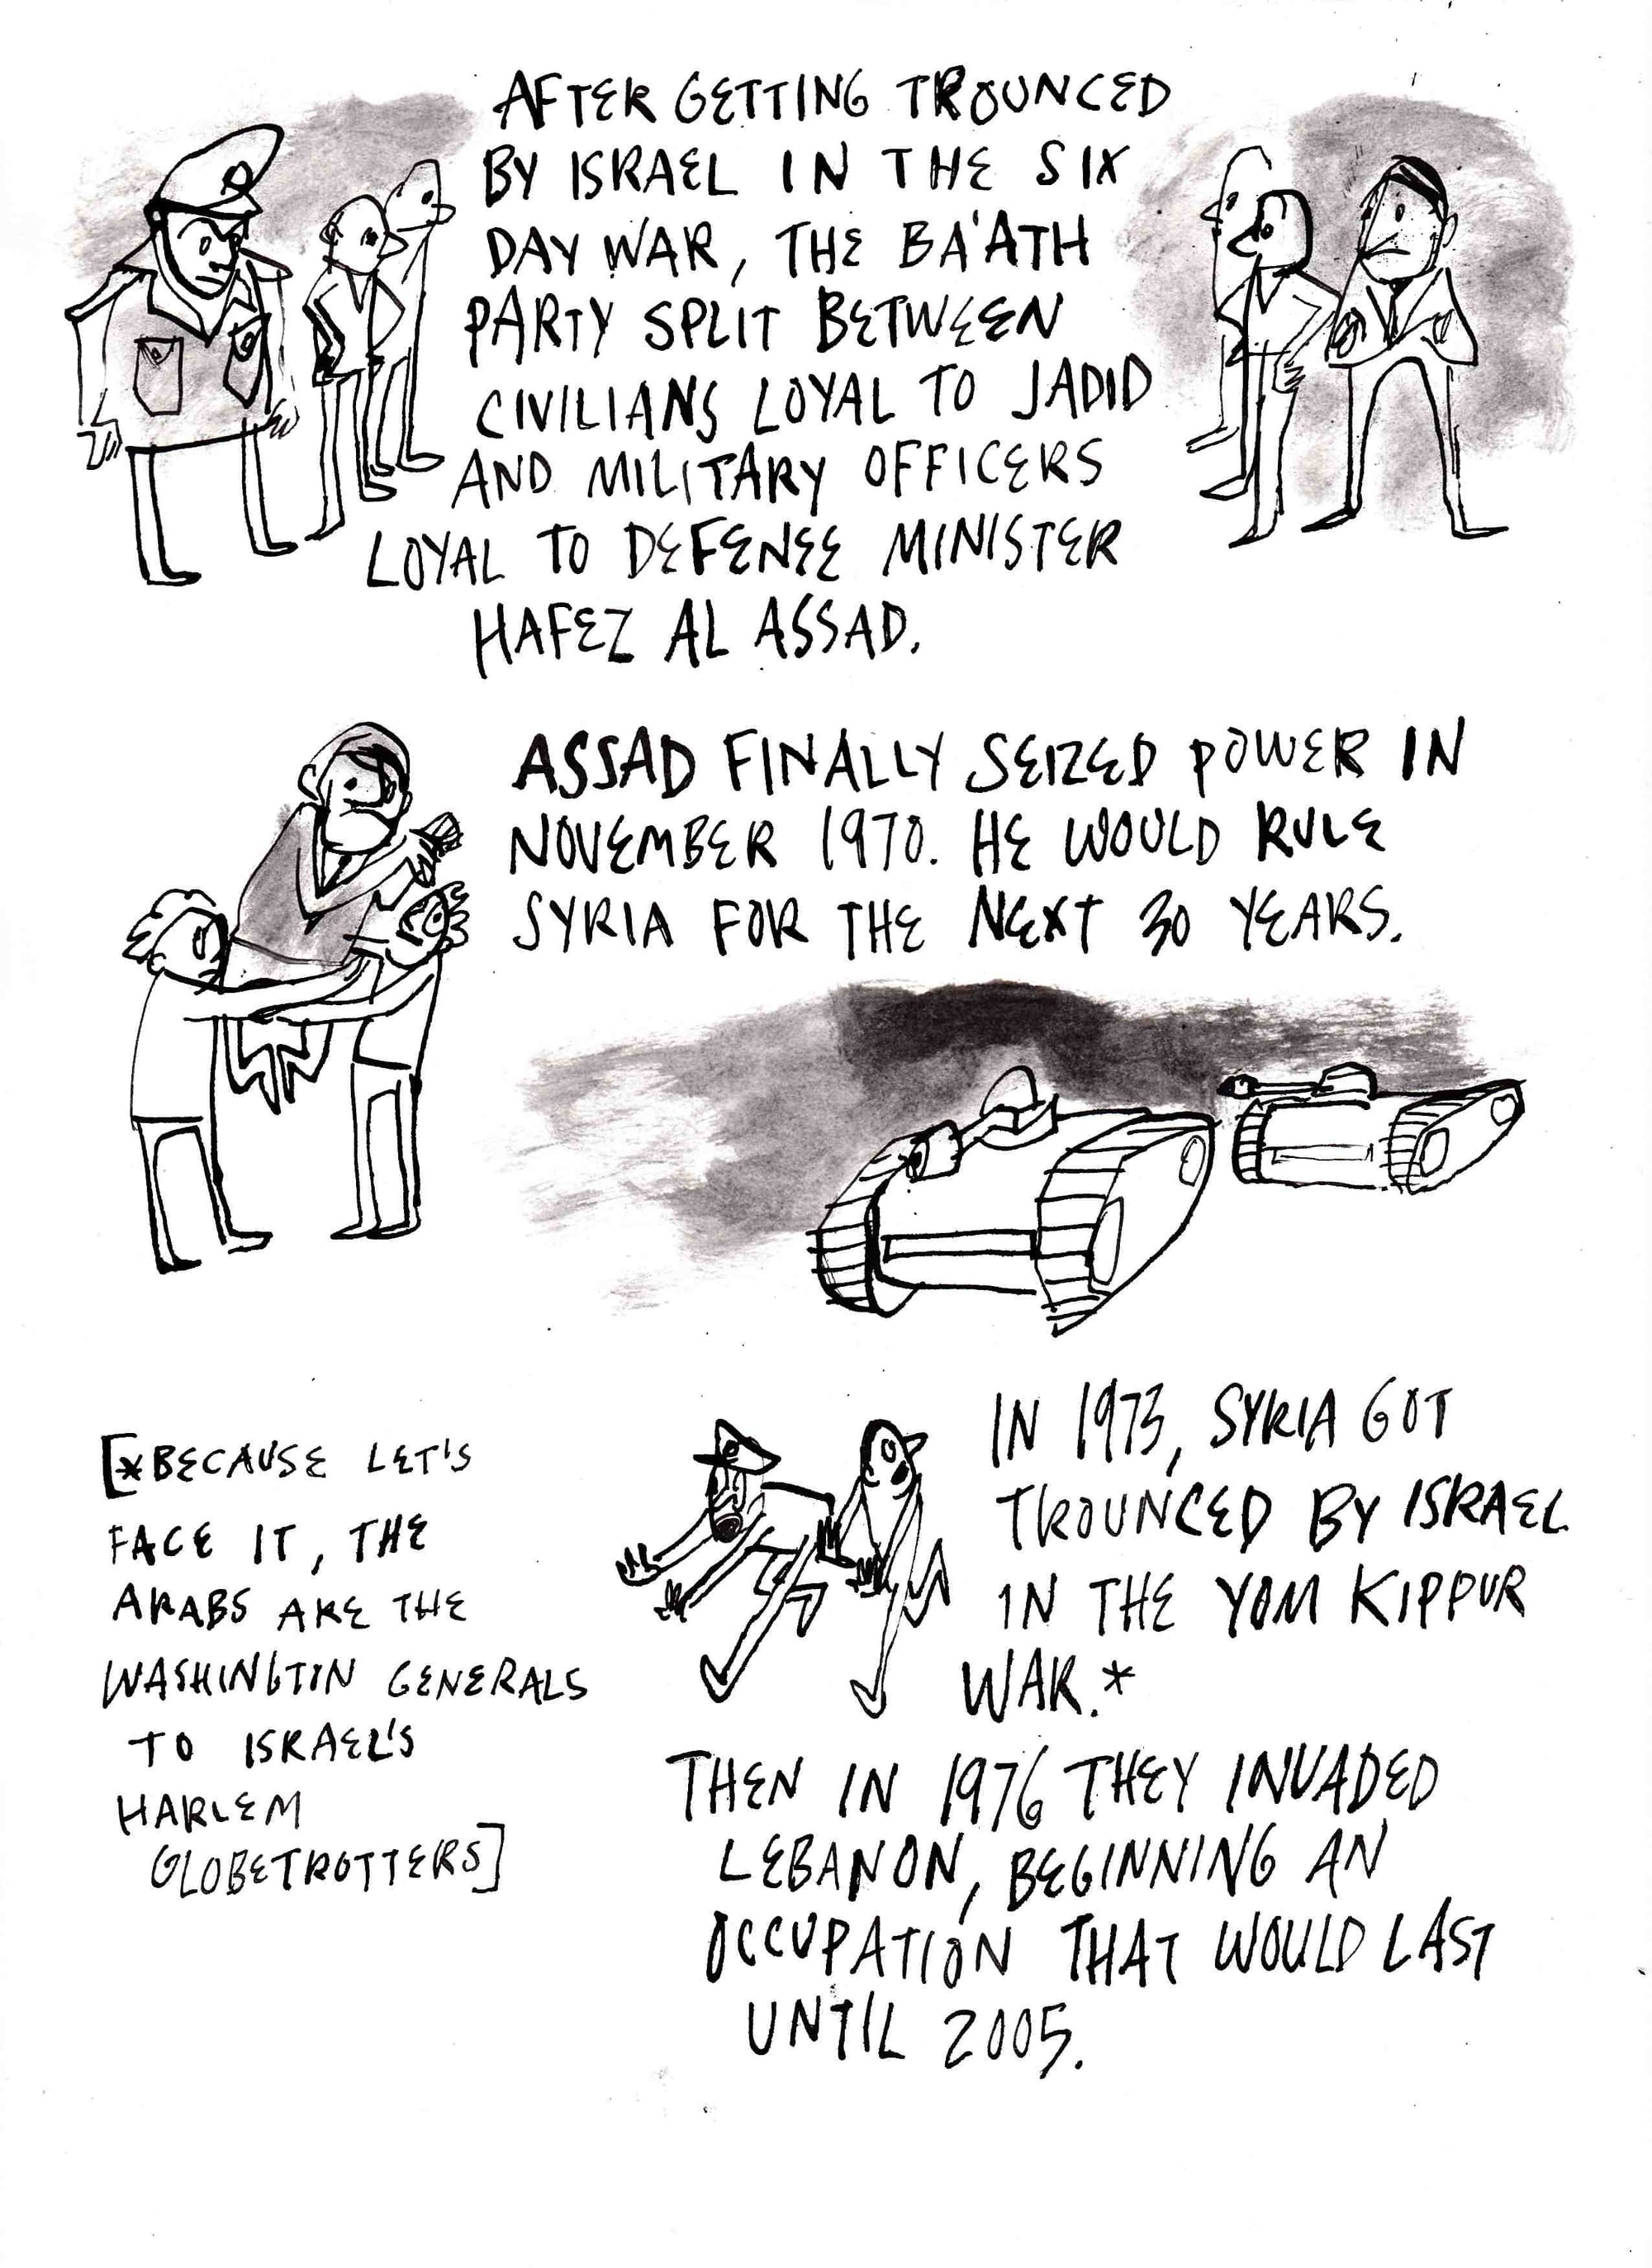 AFTER GETTING TROUNCED
BY ISRAEL IN THE SIX
DAY WAR, THE BA'ATH
PARTY SPLIT BETWEEN
CIVILIANS LOYAL TO JADID
AND MILITARY OFFICERS
LOYAL TO DEFENSE MINISTER
HAFEZ AL ASSAD.
ASSAD FINALLY SEIZED POWER IN
NOVEMBER 1970. HE WOULD RULE
SYRIA FOR THE NEXT 30 YEARS.
IN 1973, SYRIA GOT
TROUNCED BY ISRAEL
IN THE YOM KIPPUR
WAR.*
[*BECAUSE LET'S
FACE IT, THE
ARABS ARE THE
WASHINGTON GENERALS
TO ISRAEL'S
HARLEM
GLOBETROTTERS]
THEN IN 1976 THEY INVADED
LEBANON, BEGINNING AN
OCCUPATION THAT WOULD LAST
UNTIL 2005.